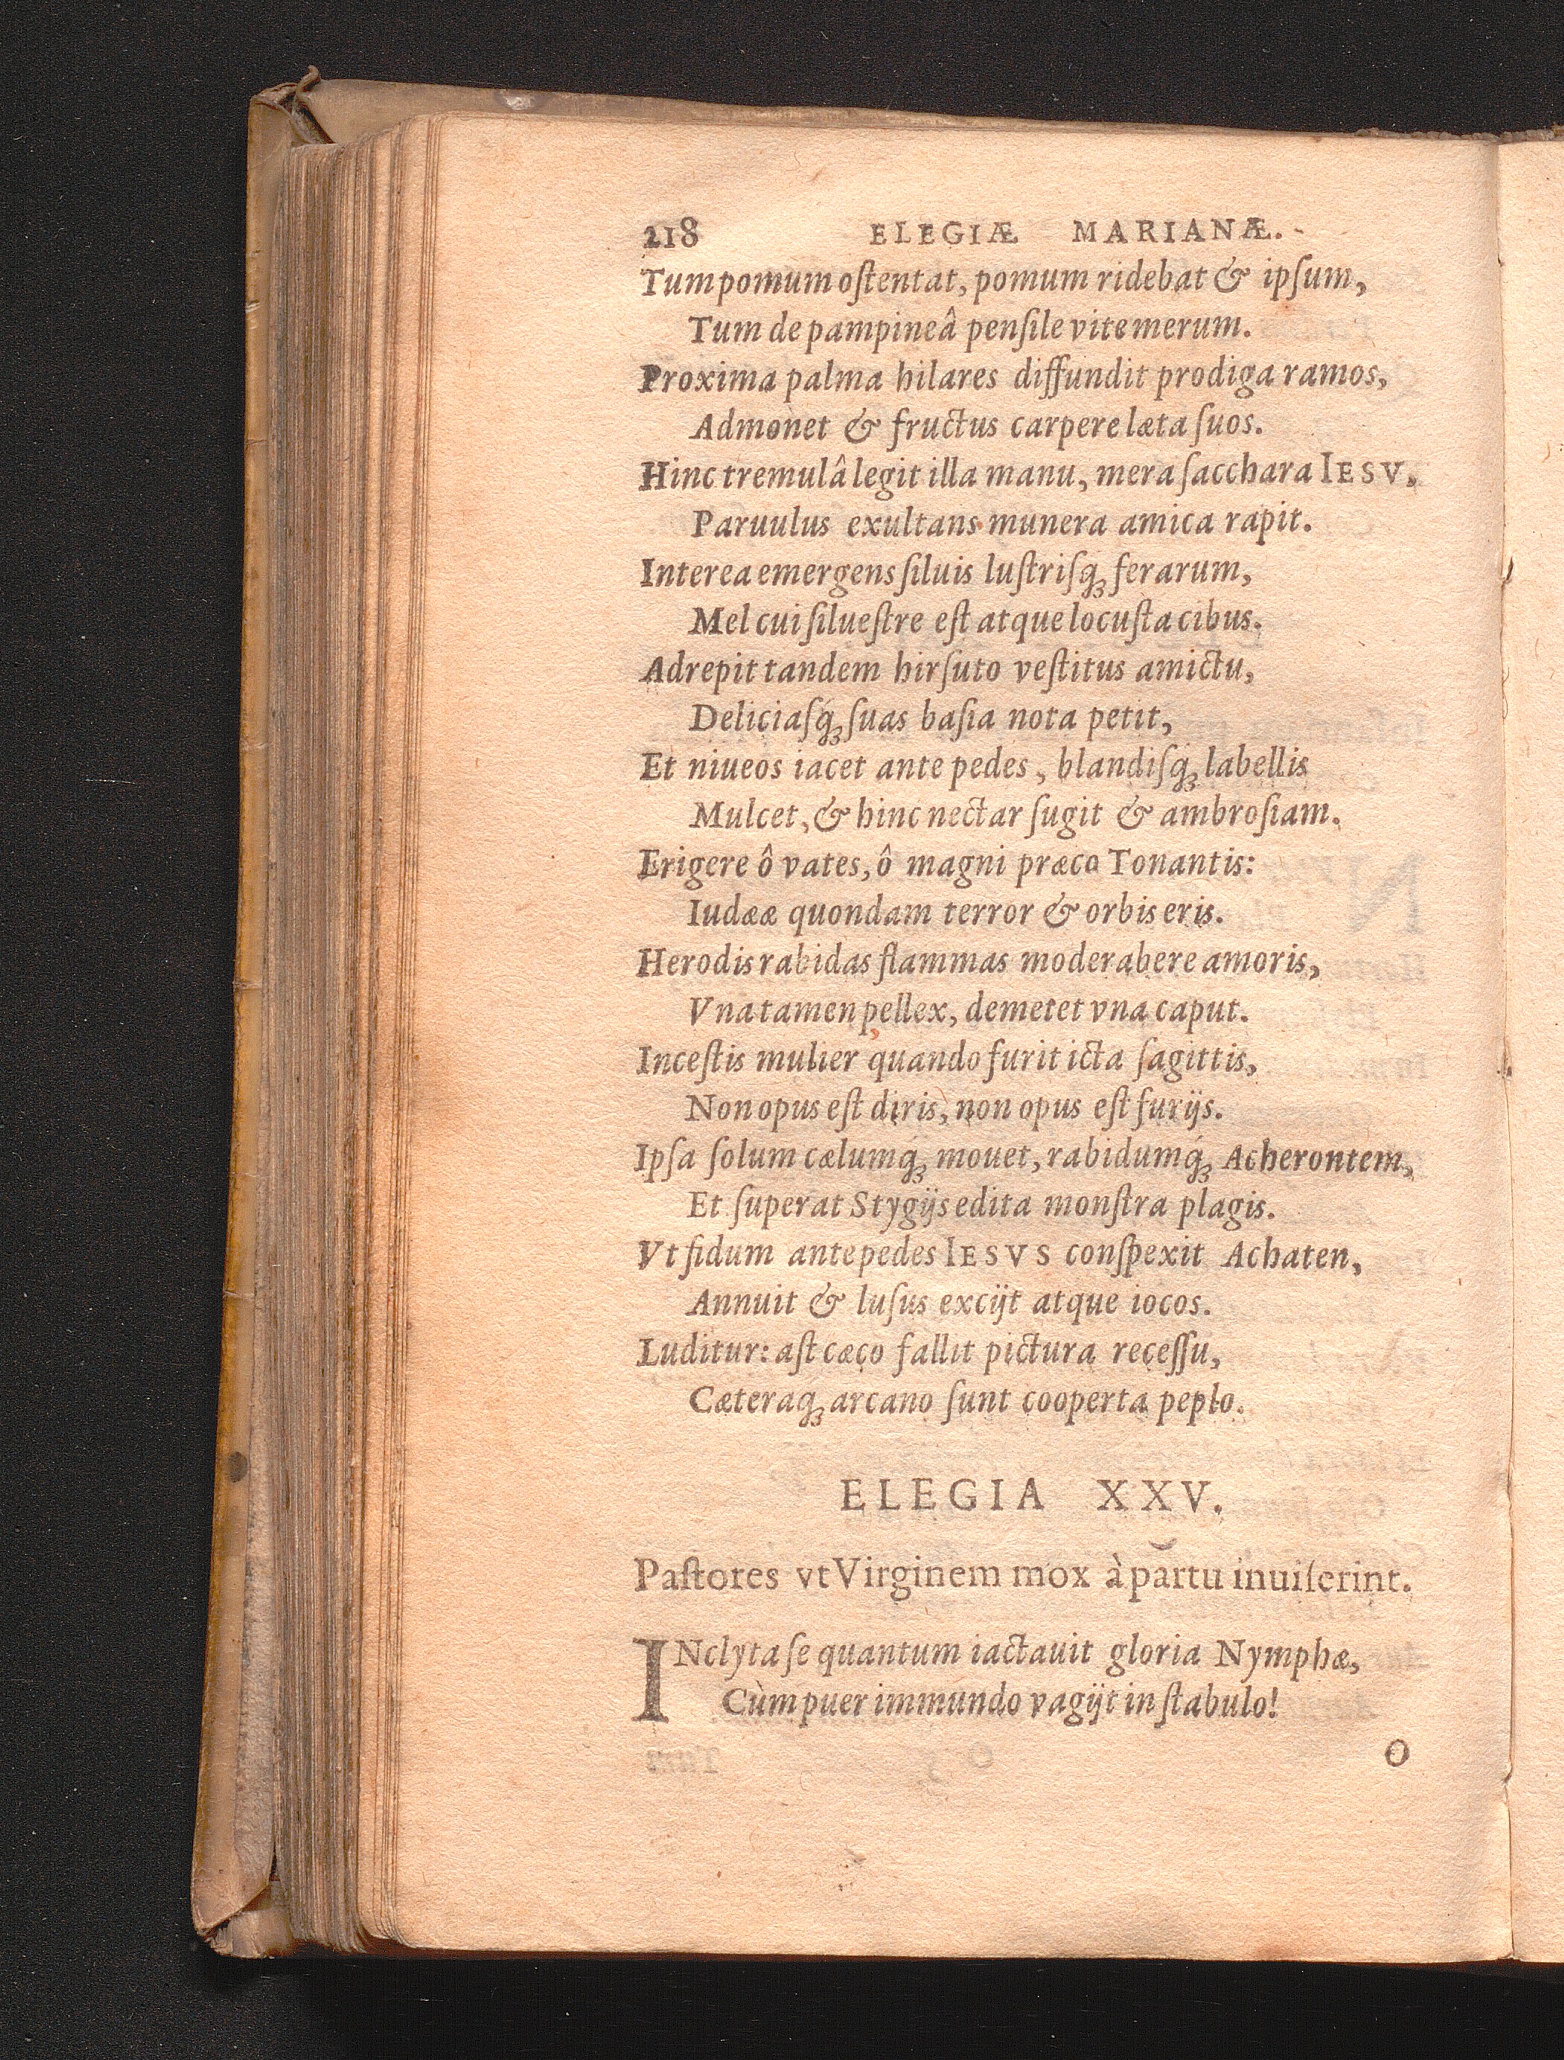 218 ELEGIÆ MARIANÆ.
Tum pomum oſtentat, pomum ridebat & ipſum,
Tum de pampineâ penſile vite merum.
Proxima palma hilares diffundit prodiga ramos,
Admonet & fructus carpere læta ſuos.
Hinc tremulâ legit illa manu, mera ſacchara IESV,
Paruulus exultans munera amica rapit.
Interea emergens ſiluis luſtriſq; ferarum,
Mel cui ſilueſtre eſt atque locuſta cibus.
Adrepit tandem hirſuto veſtitus amictu,
Deliciaſq́; ſuas baſia nota petit,
Et niueos iacet ante pedes, blandiſq́; labellis
Mulcet, & hinc nectar ſugit & ambroſiam.
Erigere ô vates, ô magni præco Tonantis:
Iudææ quondam terror & orbis eris.
Herodis rabidas flammas moderabere amoris,
Vna tamen pellex, demetet vna caput.
Inceſtis mulier quando furit icta ſagittis,
Non opus eſt diris, non opus eſt furijs.
Ipſa ſolum cælumq́; mouet, rabidumq́; Acherontem,
Et ſuperat Stygijs edita monſtra plagis.
Vt fidum ante pedes IESVS conſpexit Achaten,
Annuit & luſus excijt atque iocos.
Luditur: aſt cæco fallit pictura receſſu,
Cæteraq; arcano ſunt cooperta peplo.
ELEGIA XXV.
Paſtores vt Virginem mox à partu inuiſerint.
INclyta ſe quantum iactauit gloria Nymphæ,
Cùm puer immundo vagijt in ſtabulo!
O